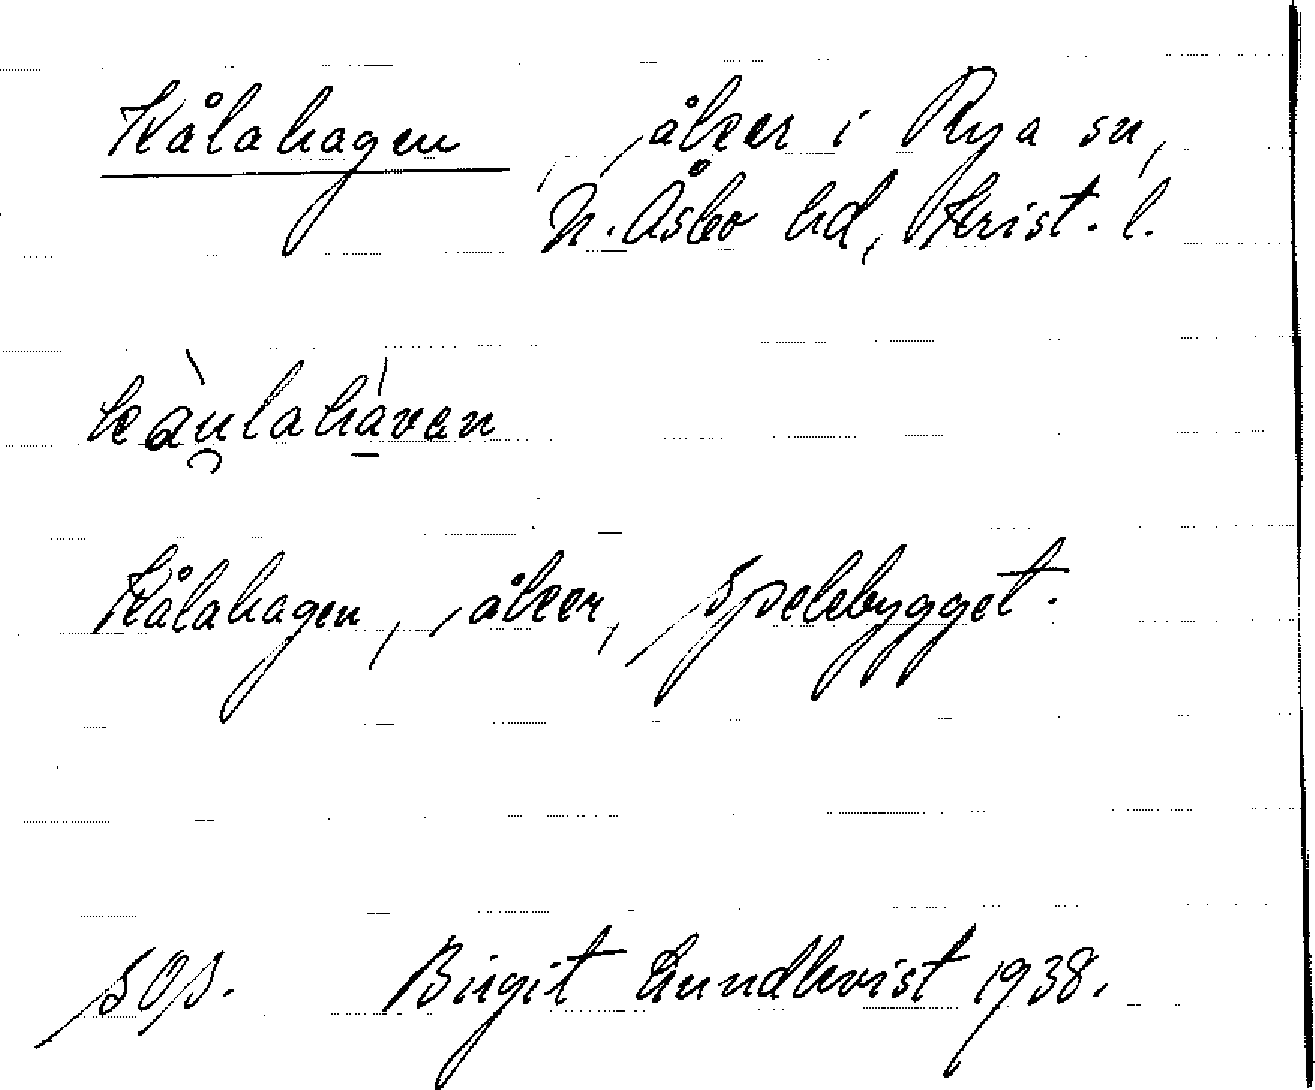 Kålahagen, åker i Rya sn,
N. Åsbo hd, Krist. l.
kàu̯lahàvan
Kålahagen, åker, Spelebygget.
SOS. Birgit Lundkvist 1938.